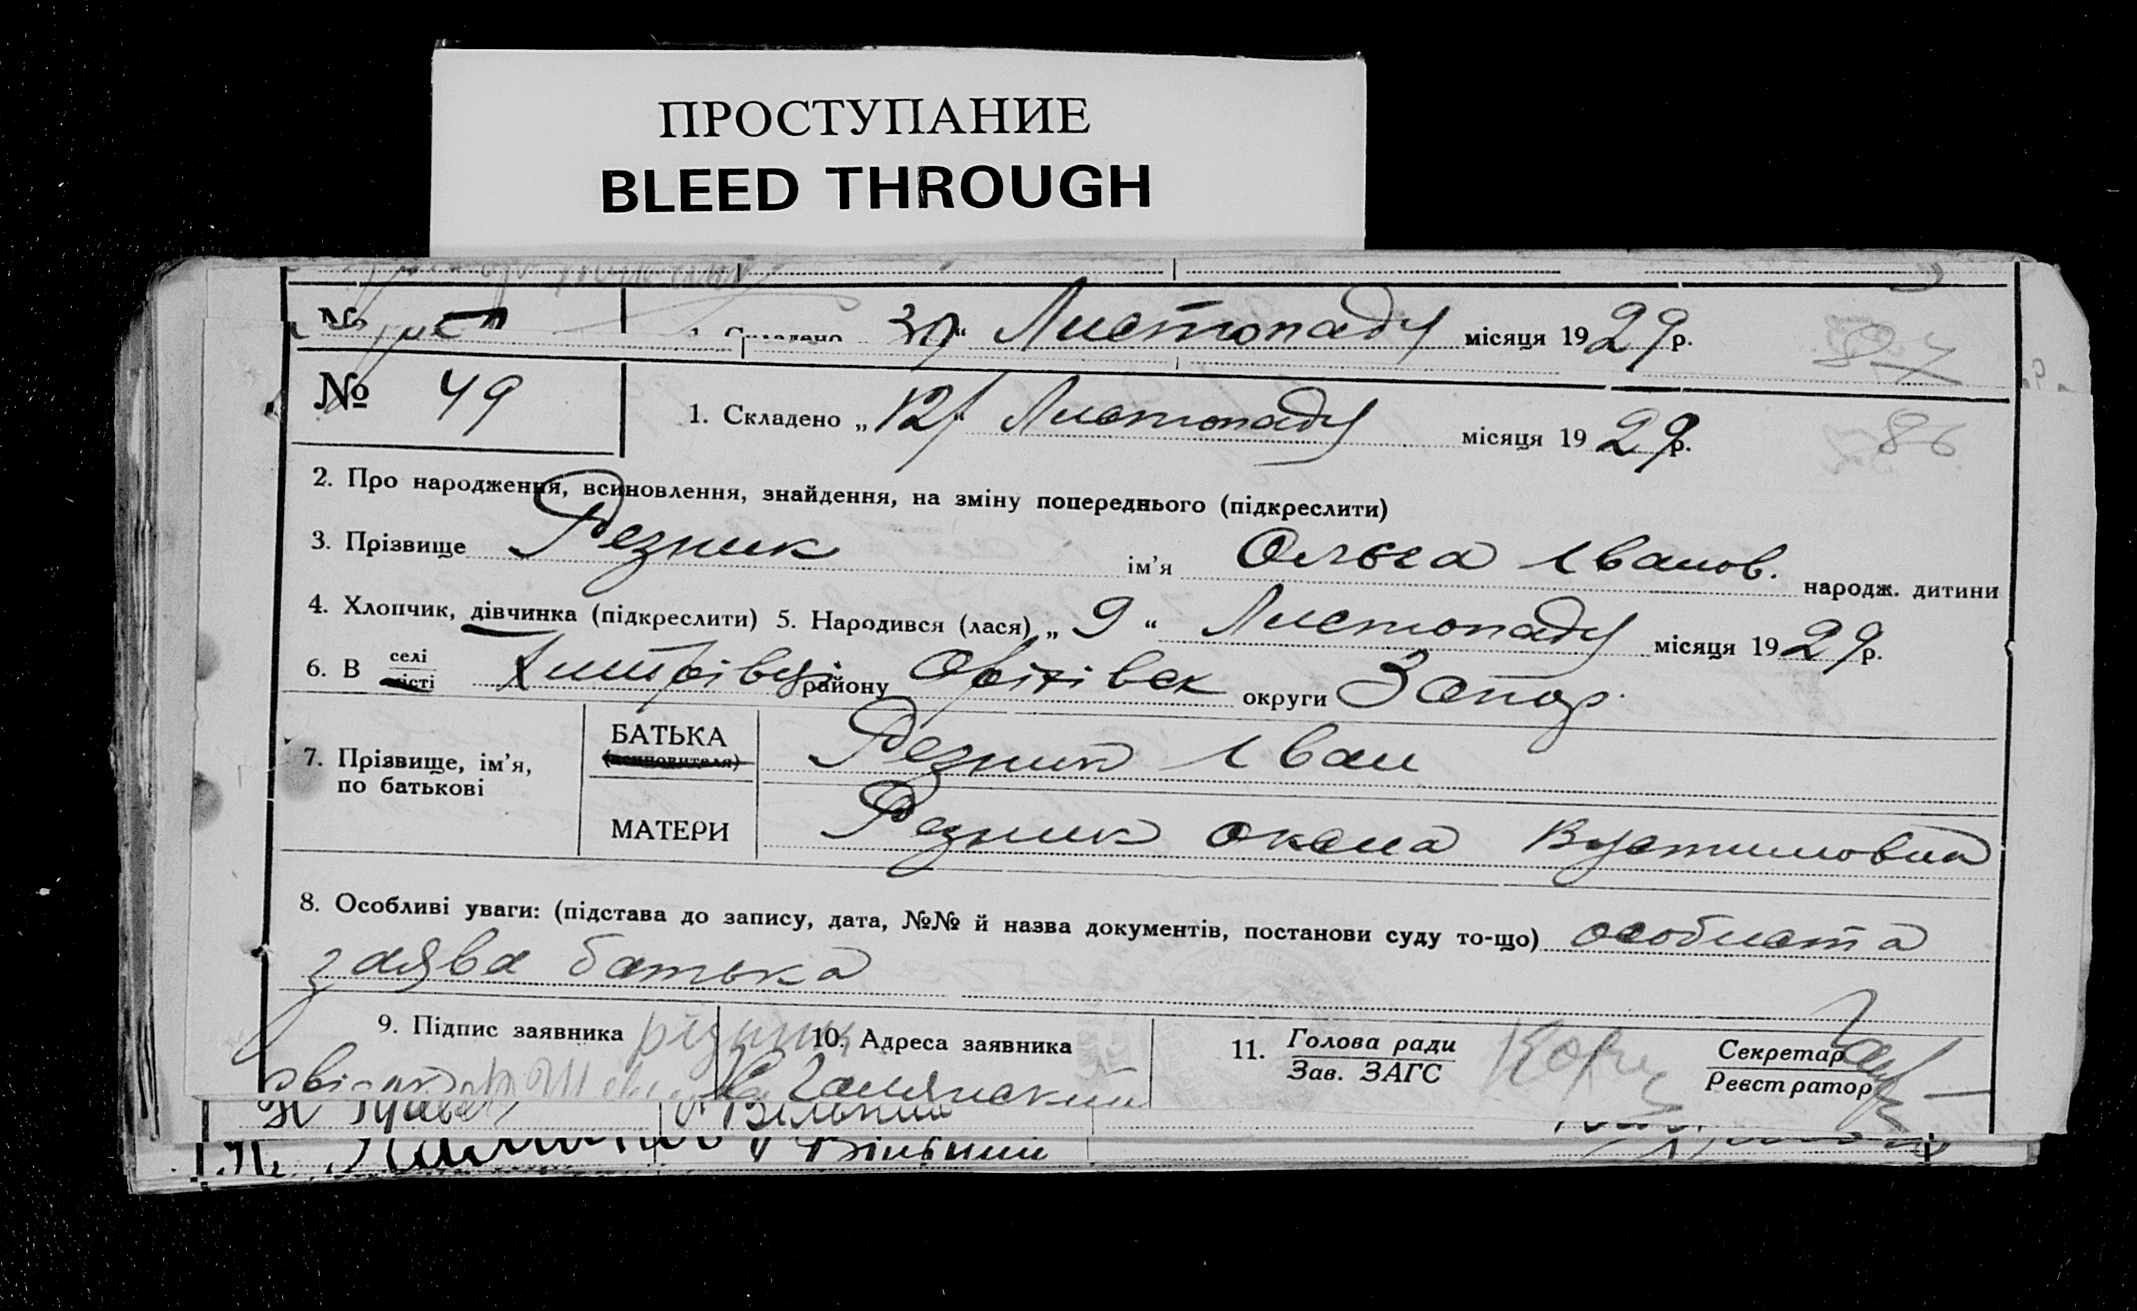 ПРОСТУПАНИЕ
BLEED THROUGH
№ 1. Складено 30 " Листопаду місяця 1929р.
87
№ 49 1. Складено „ 12 " Листопаду місяця 1929р.
86
2. Про народження, всиновлення, знайдення, на зміну попереднього (підкреслити)
3. Прізвище Резник ім'я Ольга Іванов. народж. дитини
4. Хлопчик, дівчинка (підкреслити) 5. Народився (лася) „ 9 “ Листопаду місяця 1929р.
6. В селі місті району Оріхівск округи Запор.
7. Прізвище, ім'я, по батькові
БАТЬКА (всиновителя) Резник Іван
МАТЕРИ Резник Оксена Вустимовна
8. Особливі уваги: (підстава до запису, дата, №№ й назва документів, постанови суду то-що) особиста
заява батька
9. Підпис заявника різник 10. Адреса заявника 11. Голова ради Зав. ЗАГС Секретар Реєстратор